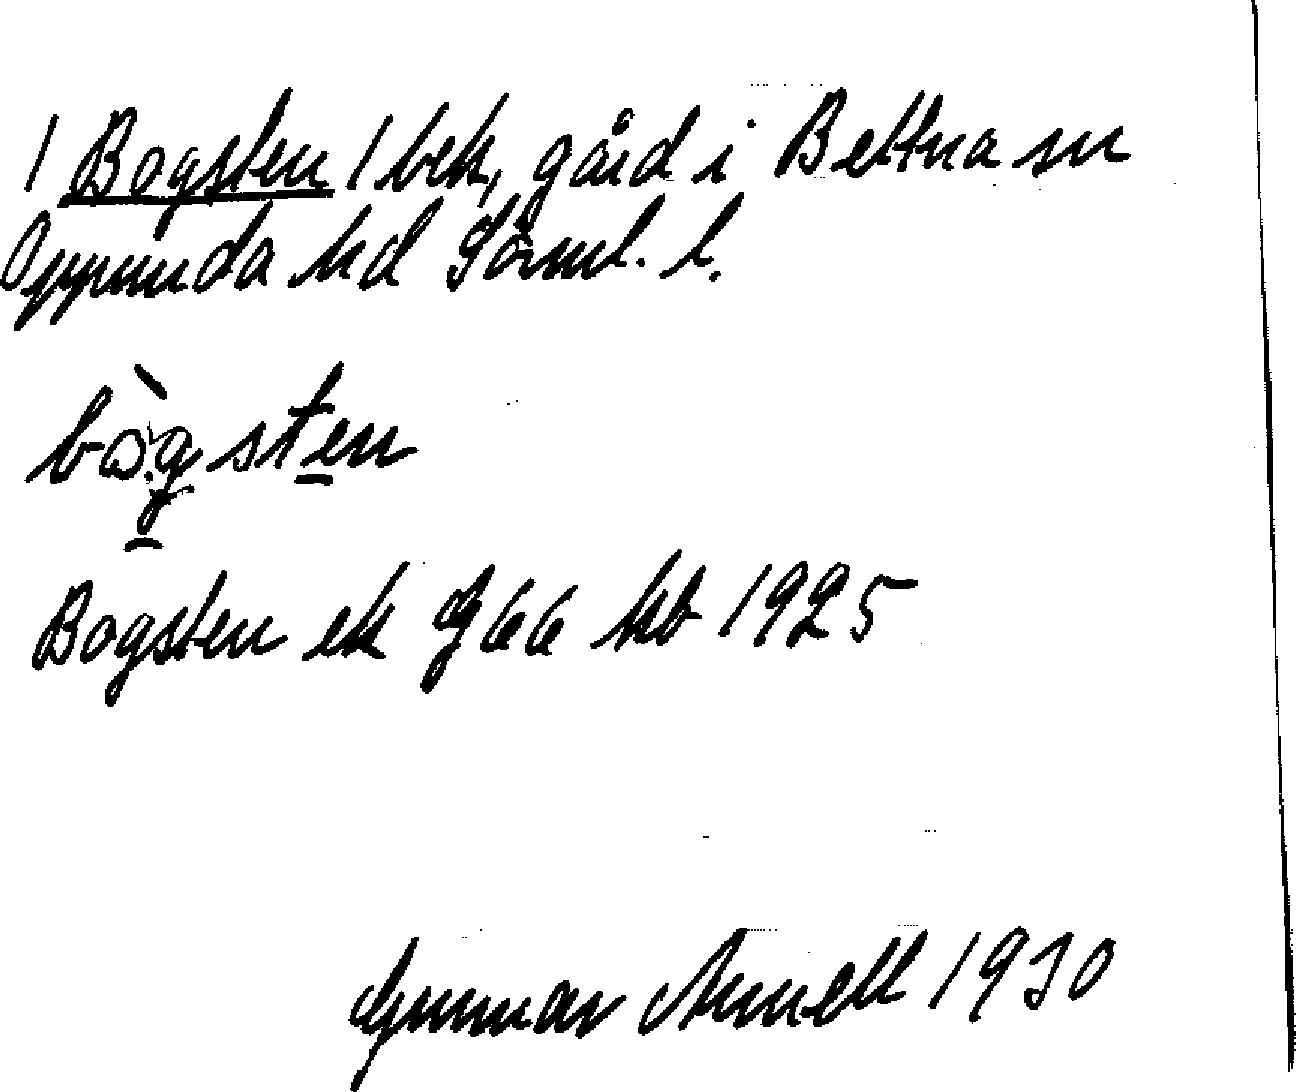 / Bogsten / bek, gård i Bettna sn
Oppunda hd Söml. l.
bò.gsten
Bogsten ek J 66 kb 1925
Gunnar Arnell 1930